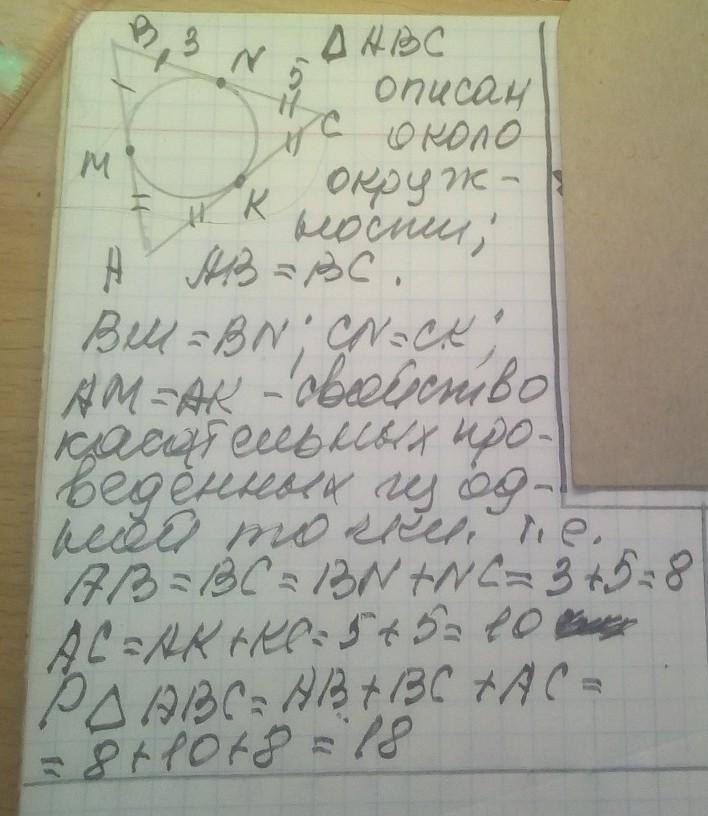 B 3 N 5 C M K A
Δ ABC
описан
около
окруж-
ности;
AB = BC.
BM = BN; CN = CK;
AM = AK - свойство
касательных про-
ведённых из од-
ной точки. т.е.
AB = BC = BN + NC = 3 + 5 = 8
AC = AK + KC = 5 + 5 = 10
P Δ ABC = AB + BC + AC =
= 8 + 10 + 8 = 18